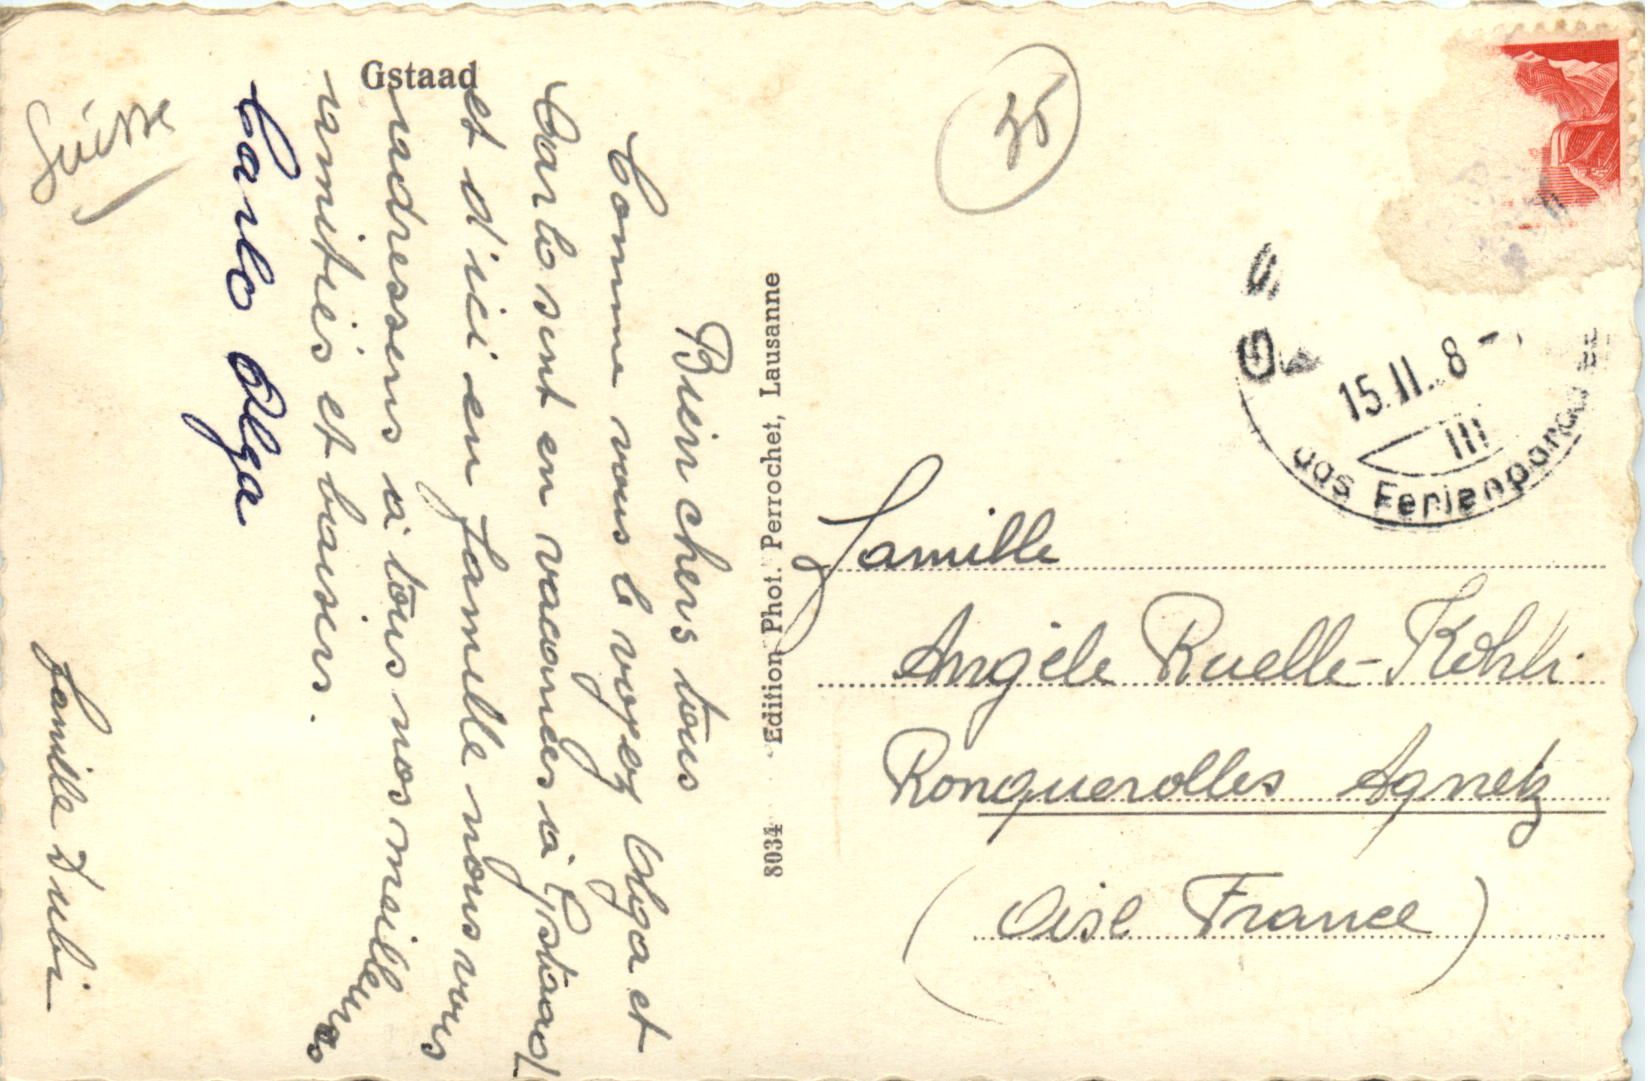 Gstaad
Suisse
Bien chers tous
Comme vous le voyez Olga et
Carlo sont en vacances à Gstaad
et d'ici en famille nous vous
adressons à tous nos meilleurs
amitiés et baisers.
Carlo Olga
famille Dubi
8034 Edition Phot. Perrochet, Lausanne
35
15.II. 8-
III
das Ferienparad
Famille
Angèle Ruelle-Kohli
Ronquerolles Agnetz
(Oise France)